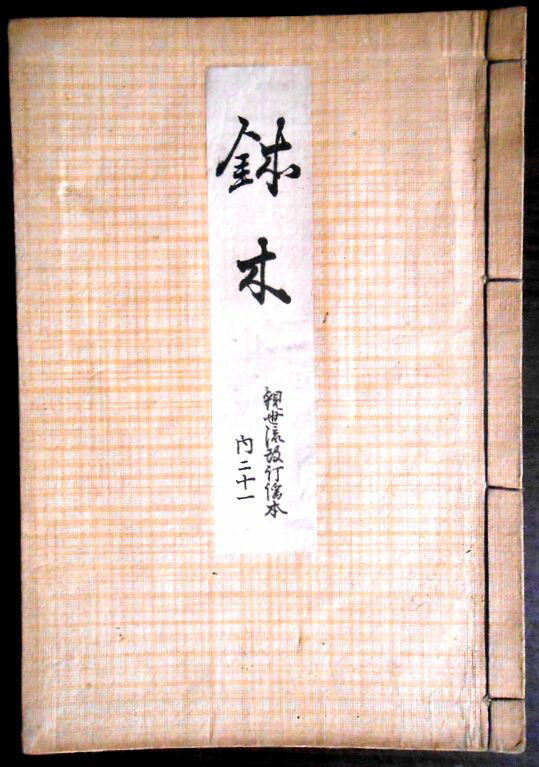 鉢木
観世流改訂謡本
内二十一